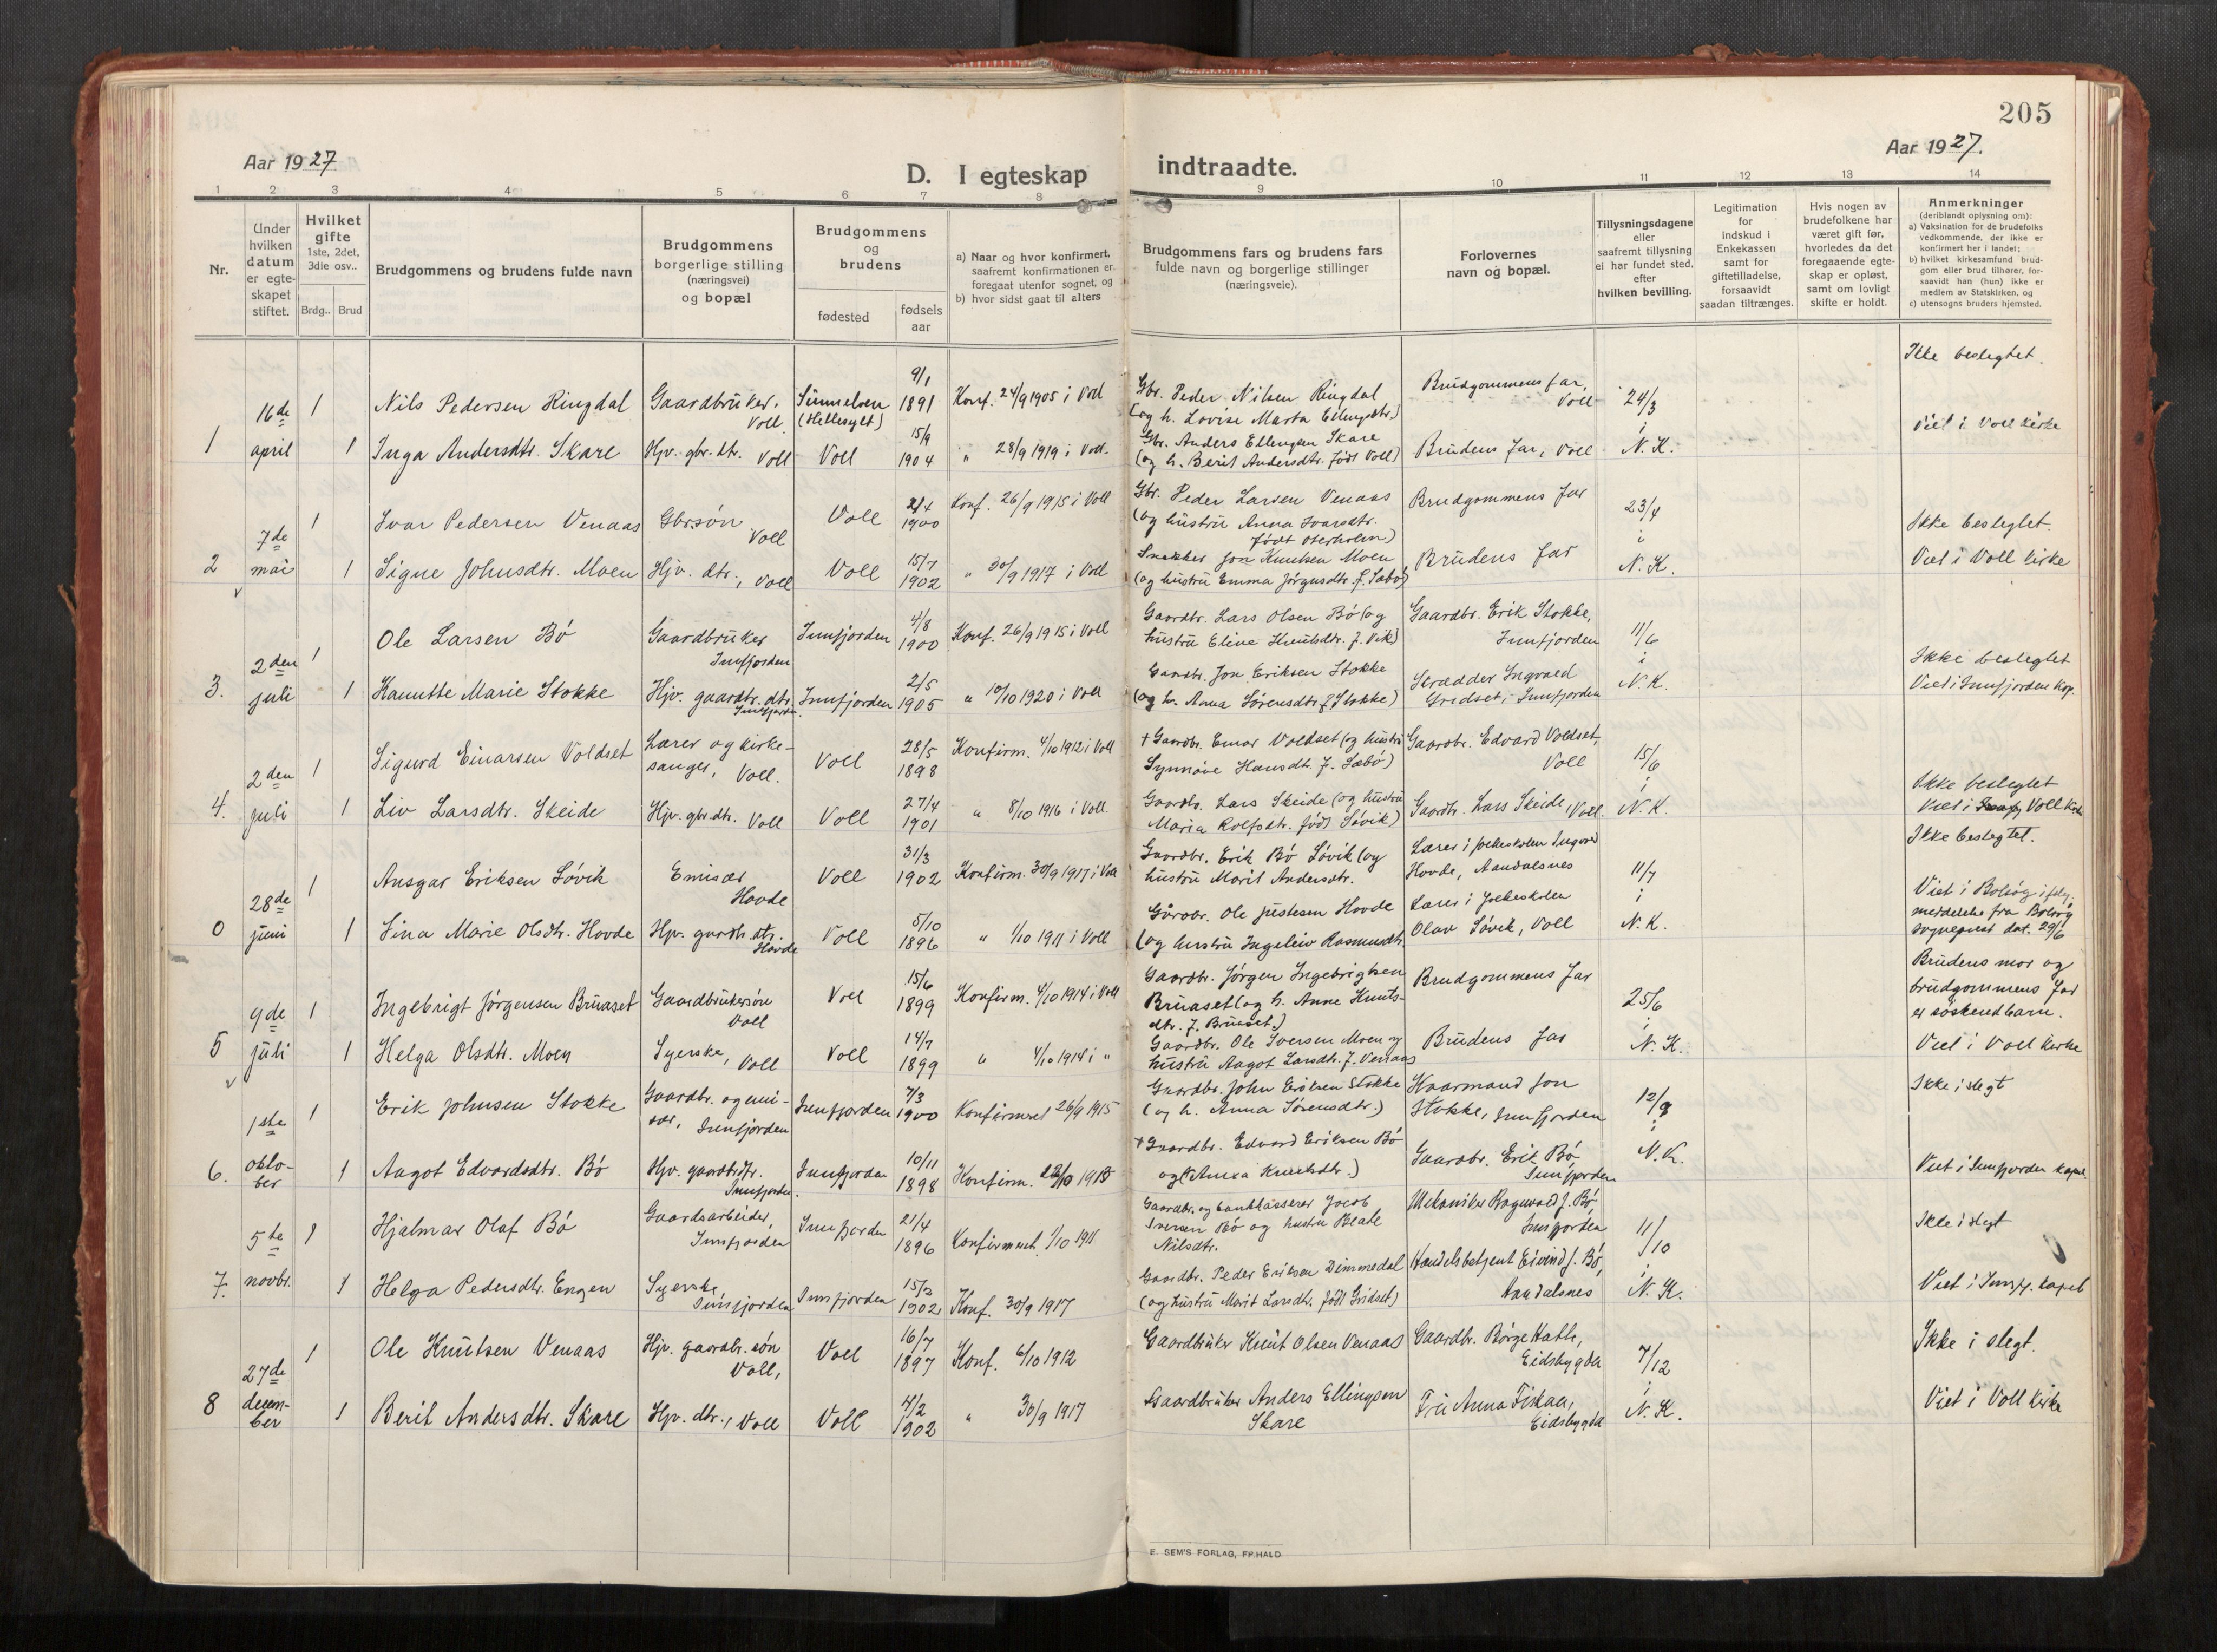 205
Aar 1927
Aar 1927.
D. I egteskap indtraadte.
1 2 3 4 5 6 7 8 9 10 11 12 13 14
Nr.
Under hvilken datum er egteskapet stiftet.
Hvilket gifte 1ste, 2det, 3die osv..
Brdg.. Brud
Brudgommens og brudens fulde navn
Brudgommens borgerlige stilling (næringsvei) og bopæl
Brudgommens og brudens
fødested
fødsels aar
a) Naar og hvor konfirmert, saafremt konfirmationen er foregaat utenfor sognet, og
b) hvor sidst gaat til alters
Brudgommens fars og brudens fars fulde navn og borgerlige stillinger (næringsveie).
Forlovernes navn og bopæl.
Tillysningsdagene eller saafremt tillysning ei har fundet sted, efter hvilken bevilling.
Legitimation for indskud i Enkekassen samt for giftetilladelse, forsaavidt saadan tiltrænges.
Hvis nogen av brudefolkene har været gift før, hvorledes da det foregaaende egteskap er opløst, samt om lovligt skifte er holdt.
Anmerkninger
(deriblandt oplysning om):
a) Vaksination for de brudefolks vedkommende, der ikke er konfirmert her i landet;
b) hvilket kirkesamfund brudgom eller brud tilhører, forsaavidt han (hun) ikke er medlem av Statskirken, og
c) utensogns bruders hjemsted.
1 16de april
1 Nils Pedersen Ringdal Gaardbruker. Voll. Sunnelven (Hellesylt) 9/1 1891 Konf. 24/9 1905 i Voll Gbr. Peder Nilsen Ringdal (og h. Lovise Marta Ellingsdtr.) Brudgommens far, Voll 24/3 i N.K. Ikke beslegtet.
1 Inga Andersdtr. Skare Hjv. gbr. dtr. Voll Voll 15/9 1904 " 28/9 1919 i Voll. Gbr. Anders Ellingsen Skare (og h. Berit Andersdtr. født Voll) Brudens far, Voll Viet i Voll kirke
2 7de mai
1 Ivar Pedersen Venaas Gbr.søn Voll Voll 2/4 1900 Konf. 26/9 1915 i Voll Gbr. Peder Larsen Venaas (og hustru Anna Ivarsdtr. født Oterholm) Brudgommens far 23/4 i N.K. Ikke beslegtet.
1 Signe Johnsdtr. Moen Hjv. dtr., Voll Voll 15/7 1902 " 30/9 1917 i Voll Snekker Jon Knutsen Moen (og hustru Emma Jørgensdtr. f. Sæbø) Brudens far Viet i Voll kirke
3. 2den juli
1 Ole Larsen Bø Gaardbruker Innfjorden Innfjorden 4/8 1900 Konf. 26/9 1915 i Voll Gaardbr. Lars Olsen Bø (og hustru Eline Knutsdtr. f. Vik) Gaardbr. Erik Stokke, Innfjorden 11/6 i N.K. Ikke beslegtet
1 Kanutte Marie Stokke Hjv. gaardbr. dtr. Innfjorden. Innfjorden 2/5 1905 " 10/10 1920 i Voll Gaardbr. Jon Eriksen Stokke (og h. Anna Sørensdtr. f. Stokke) Skrædder Ingvald Gridset, Innfjorden Viet i Innfjorden kap.
4. 2den juli
1 Sigurd Einarsen Voldset Lærer og kirkesanger, Voll. Voll 28/5 1898 Konfirm. 4/10 1912 i Voll + Gaardbr. Einar Voldset (og hustru Synnøve Hansdtr. f. Sæbø) Gaardbr. Edvard Voldset, Voll 15/6 i N.K. Ikke beslegtet
1 Liv Larsdtr. Skeide Hjv. gbr. dtr. Voll Voll 27/4 1901 " 8/10 1916 i Voll. Gaardb. Lars Skeide (og hustru Maria Rolfsdtr. født Søvik) Gaardbr. Lars Skeide, Voll. Viet i Voll kirke
0 28de juni
1 Ansgar Eriksen Søvik Emisær Hovde Voll 31/3 1902 Konfirm. 30/9 1917 i Voll Gaardbr. Erik Bø Søvik (og hustru Marit Andersdtr. Lærer i folkeskolen Ingvard Hovde, Aandalsnes 11/7 i N.K. Ikke beslegtet.
1 Sina Marie Olsdtr. Hovde Hjv. gardb. dtr. Hovde Voll 5/10 1896 " 1/10 1911 i Voll Gårdbr. Ole Justesen Hovde (og hustru Ingeleiv Rasmusdtr. Lærer i folkeskolen Olav Søvik, Voll Viet i Bolsøy ifølg. meddelelse fra Bolsøy sogneprest dat. 29/6
5 9de juli
1 Ingebrigt Jørgensen Bruaset Gaardbrukersøn Voll Voll 15/6 1899 Konfirm. 4/10 1914 i Voll Gaardbr. Jørgen Ingebrigtsen Bruaset (og h. Anne Knutsdtr. f. Bruaset.) Brudgommens far 25/6 i N.K. Brudens mor og brudgommens far er søskendbarn.
1 Helga Olsdtr. Moen Syerske, Voll Voll 14/7 1899 " 4/10 1914 i " Gaardbr. Ole Iversen Moen og hustru Aagot Larsdtr. f. Venaas Brudens far Viet i Voll kirke
6. 1ste oktober
1 Erik Johnsen Stokke Gaardbr. og emisær, Innfjorden Innfjorden 7/3 1900 Konfirmeret 26/9 1915 Gaardbr. John Eriksen Stokke (og h. Anna Sørensdtr.) Kaarmand Jon Stokke, Innfjorden 12/9 i N.K. Ikke i slegt
1 Aagot Edvardsdtr. Bø Hjv. gaardbrdtr. Innfjorden. Innfjorden 10/11 1898 Konfirm. + Gaardbr. Edvard Eriksen Bø og (Anna Knutsdtr.) Gaardbr. Erik Bø Innfjorden Viet i Innfjorden kapel.
7. 5te novbr.
1 Hjalmar Olaf Bø Gaardsarbeider, Innfjorden Innfjorden 21/4 1896 Konfirmeret 1/10 1911 Gaardbr. og bankkasserer Jacob Iversen Bø og hustru Beate Nilsdtr. Mekaniker Ragnvald J. Bø, Innfjorden 11/10 i N.K. Ikke i slegt
1 Helga Pedersdtr. Engen Syerske, Innfjorden Innfjorden 15/2 1902 Konf. 30/9 1917 Gaardbr. Peder Eriksen Dimmedal (og hustru Marit Larsdtr. født Gridset) Handelsbetjent Eivind J. Bø, Aandalsnes Viet i Innfj. kapel
8 27de december
1 Ole Knutsen Venaas Hjv. gaardbr. søn Voll, Voll 16/7 1897 Konf. 6/10 1912 Gaardbruker Knut Olsen Venaas Gaardbr. Børge Hatle, Eidsbygda 7/12 i N.K. Ikke i slegt.
1 Berit Andersdtr. Skare Hjv. dtr., Voll Voll 4/2 1902 " 30/9 1917 Gaardbruker Anders Ellingsen Skare Frk. Anna Fiskaa, Eidsbygda Viet i Voll kirke
E. SEM'S FORLAG, FR.HALD